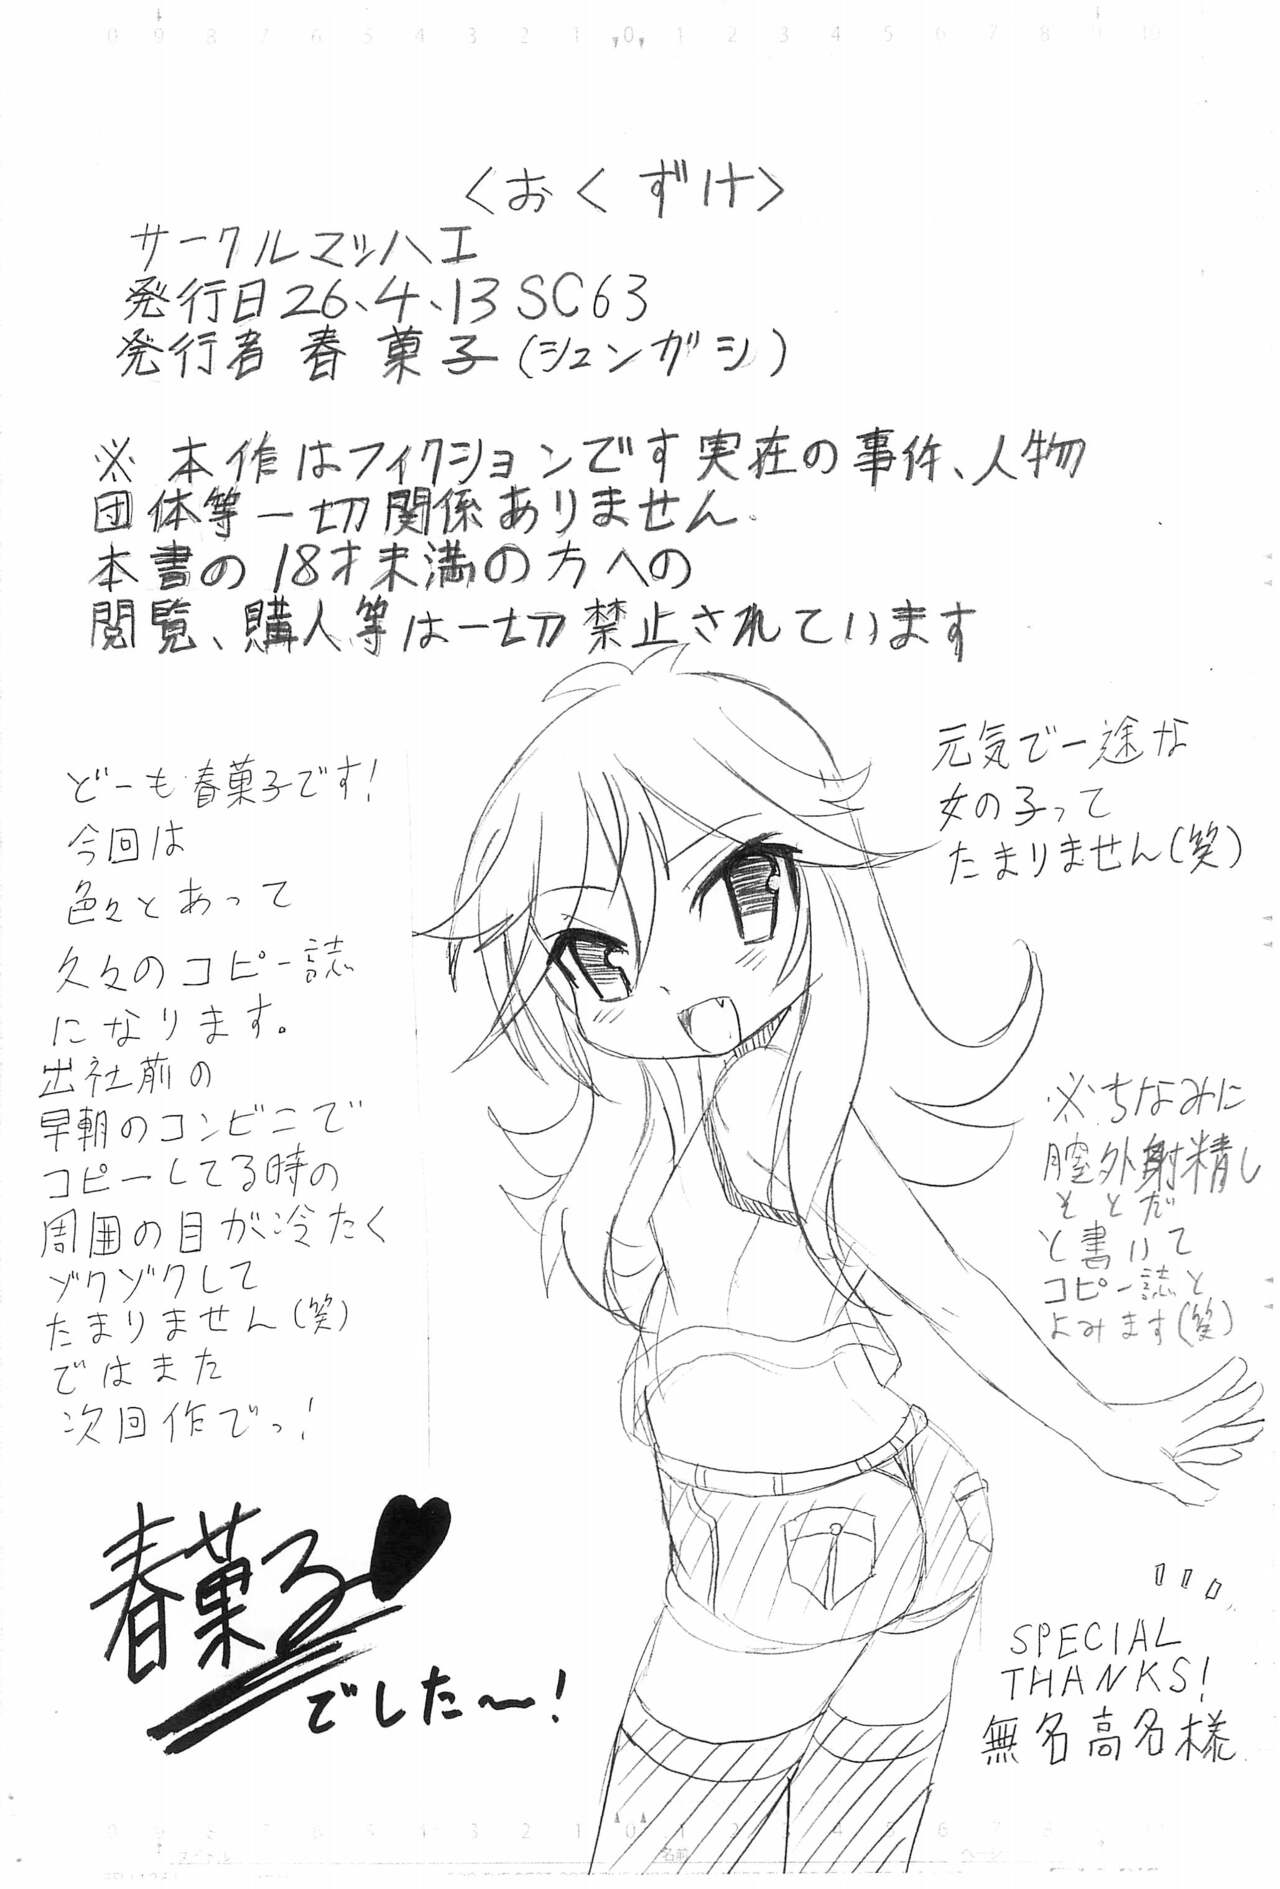 0 9 8 7 6 5 4 3 2 1 0 1 2 3 4 5 6 7 8 9 10
〈おくずけ〉
サークルマッハ工
発行日26、4、13 SC63
発行者 春菓子(シュンガシ)
※ 本作はフィクションです実在の事件、人物
団体等一切関係ありません.
本書の18才未満の方への
閲覧、購入等は一切禁止されています
元気で一途な
女の子って
たまりません(笑)
どーも春菓子です!
今回は
色々とあって
久々のコピー誌
になります。
出社前の
早朝のコンビニで
コピーしてる時の
周囲の目が冷たく
ゾクゾクして
たまりません(笑)
ではまた
次回作でっ!
※ちなみに
膣外射精し
そとだ
と書いて
コピー誌と
よみます(笑)
春菓子
でした〜!
SPECIAL
THANKS!
無名高名様
0 9 8 7 6 5 4 3 2 1 0 1 2 3 4 5 6 7 8 9 10
名前